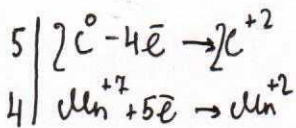 5 | 2C⁰ - 4ē → 2C⁺²
4 | Mn⁺⁷ + 5ē → Mn⁺²